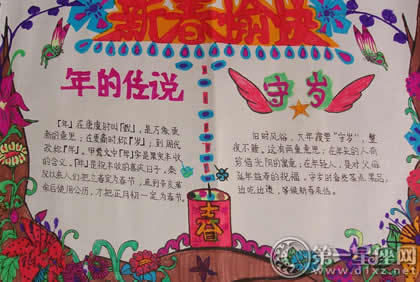 新春愉快
年的传说
『年』在唐虞时叫『载』,是万象更
新的意思;在夏朝时称『岁』;到周代
改称『年』。甲骨文中『年』字是果实丰收
的含义,『年』是祝丰收的喜庆日子。秦
汉以来人们把之春定为春节,直到辛亥革
命后使用公历,才把正月初一定为春节。
守岁
旧时风俗,大年夜里"守岁",整
夜不睡。这有两重意思:在年长的人有
珍惜光阴的寓意,在年轻人,是对父母
延年益寿的祝福。守岁时备些茶点果品,
边吃边谈,等候新春来临。
吉
第一星座网
www.d1xz.net